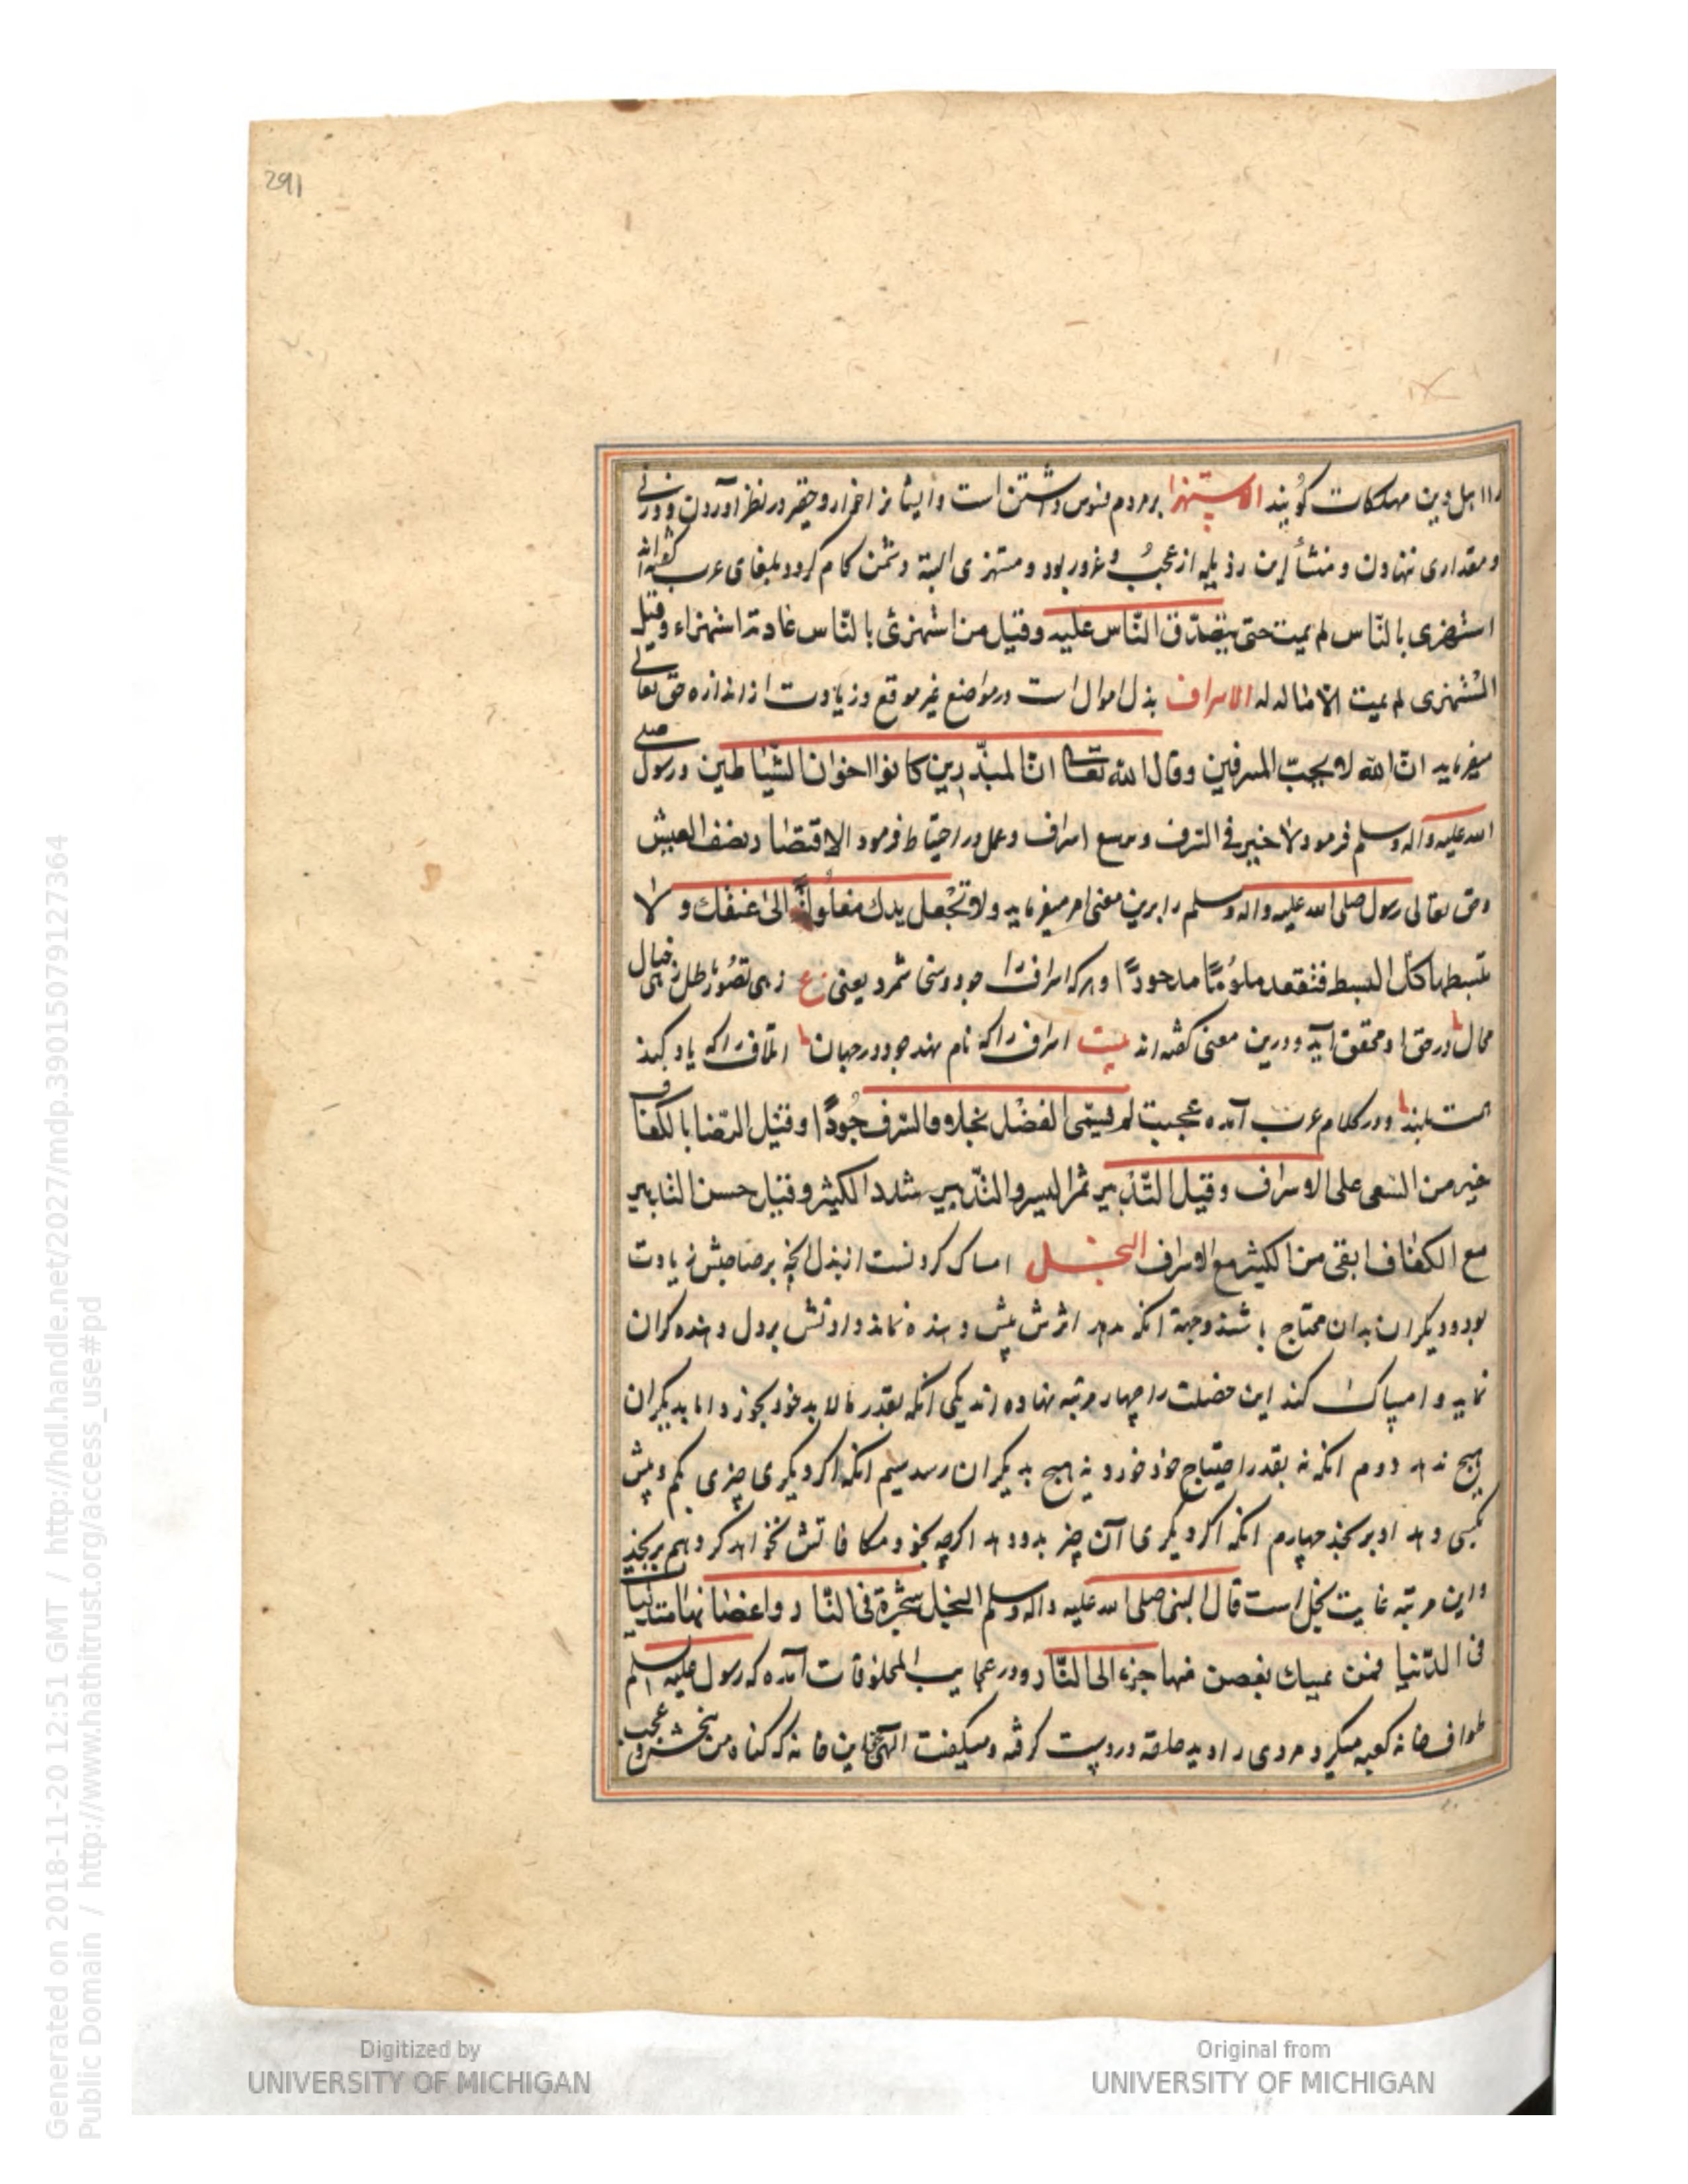 291
را اهل دین مهلکات گویند الاستهزا بر مردم فسوس داشتن است و ایشانرا خوار و حقیر در نظر آوردن و وزنی
و مقداری ننهادن و منشأ این رذیله از عُجب و غرور بود و مستهزی البته دشمن کام گردد بلغای عرب گفته‌اند
استهزی بالنّاس لم یمت حتی یتصدّق النّاس علیه و قیل من استهزئ بالنّاس عادته استهزاء و قیل
المُستهزی لم یمت الاسراف بذل اموال است در مواضع غیر موقع و زیادت از اندازه حق تعالی
میفرماید انّ الله لا یحبّ المسرفین و قال الله تعالی انّ المبذّرین کانوا اخوان الشّیاطین و رسول صلی
الله علیه و آله و سلم فرمود لا خیر فی السرف و منع اسراف و عمل در احتیاط فرمود الاقتصاد نصف العیش
و حق تعالی رسول صلی الله علیه و اله و سلم را برین معنی امر میفرماید و لا تجْعل یدك مغلُولةً الی عنقك و لا
تبسطها كلّ البسط فتقعد ملومًا مدحورًا و هر که اسراف را جود و سخا شمرد یعنی ع زهی تصوّر باطل زهی خیال
محال در حق او محقق آید و درین معنی گفته‌اند بیت اسراف را که نام نهد جود در جهان اتلاف را که یاد کند
همت بلند و در کلام عرب آمده عجبت لم یسمّی الفضل بخلا و السرف جُودًا و قیل الرّضا بالکفاف
خیر من السّعی علی الاسراف و قیل التّدبیر ثمر الیسیر و التّبذیر یبدد الکثیر و قیل حسن التدبیر
مع الکفاف ابقی من الکثیر مع الاسراف البخل امساک کردنست از بذل آنچه بر صاحبش زیادت
بود و دیگران بدان محتاج باشند و جهة آنکه مهر اثرش پیش دهنده نماند و دادنش بر دل دهنده گران
نماید و امساک کند این خصلت را چهار مرتبه نهاده‌اند یکی آنکه بقدر مالابد خود بخورد و اما بدیگران
هیچ ندهد دوم آنکه نه بقدر احتیاج خود خورد و نه هیچ بدیگران رسد سیم آنکه اگر دیگری چیزی کم و بیش
بکسی دهد او برنجد چهارم آنکه اگر دیگری آن چیز بدو دهد اگر چه بخود و مکافاتش نخواهد کرد هم برنجد
و این مرتبه غایت بخل است قال النبی صلی الله علیه و اله و سلم البخل شجرة فی النّار و اغصانها متدلیا
فی الدّنیا فمن تمسك بغصن منها جزه الی النّار و در عجایب المخلوقات آمده که رسول علیه السلم
طواف خانه کعبه میکرد مردی را دید حلقه در دست گرفته و میگفت الهی بحق این خانه که گناه من ببخش
Generated on 2018-11-20 12:51 GMT / http://hdl.handle.net/2027/mdp.39015079127364
Public Domain / http://www.hathitrust.org/access_use#pd
Digitized by
UNIVERSITY OF MICHIGAN
Original from
UNIVERSITY OF MICHIGAN